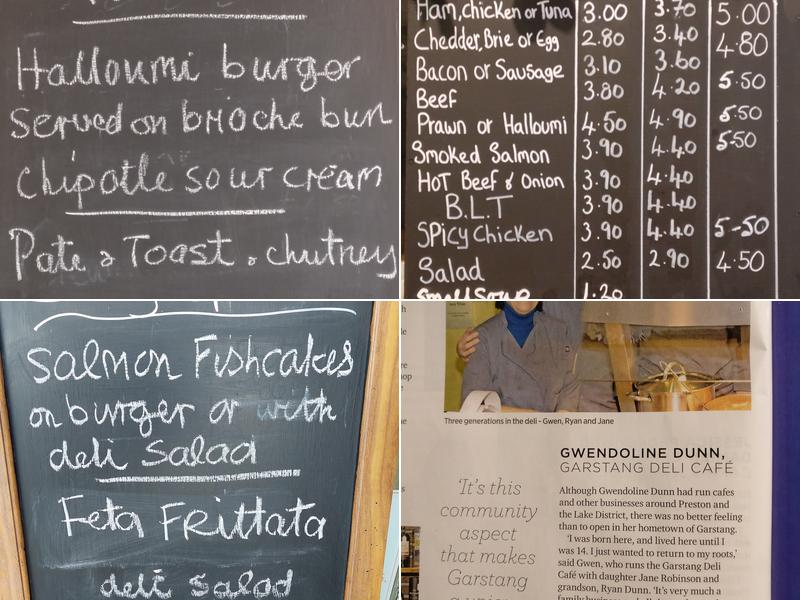 Halloumi burger
Served on brioche bun
Chipotle sour cream
Pate & Toast & chutney
Ham, chicken or Tuna 3.00 3.70 5.00
Chedder, Brie or Egg 2.80 3.40 4.80
Bacon or Sausage 3.10 3.60 5.50
Beef 3.80 4.20
Prawn or Halloumi 4.50 4.90 5.50
Smoked Salmon 3.90 4.40 5.50
HOT Beef & Onion 3.90 4.40
B.L.T 3.90 4.40
SPicy Chicken 3.90 4.40 5-50
Salad 2.50 2.90 4.50
Small Soup 1.20
Salmon Fishcakes
on burger or with
deli Salad
Feta FRittata
deli salad
Three generations in the deli - Gwen, Ryan and Jane
'It's this
community
aspect
that makes
Garstang
GWENDOLINE DUNN,
GARSTANG DELI CAFÉ
Although Gwendoline Dunn had run cafes
and other businesses around Preston and
the Lake District, there was no better feeling
than to open in her hometown of Garstang.
'I was born here, and lived here until I
was 14. I just wanted to return to my roots,'
said Gwen, who runs the Garstang Deli
Café with daughter Jane Robinson and
grandson, Ryan Dunn. 'It's very much a